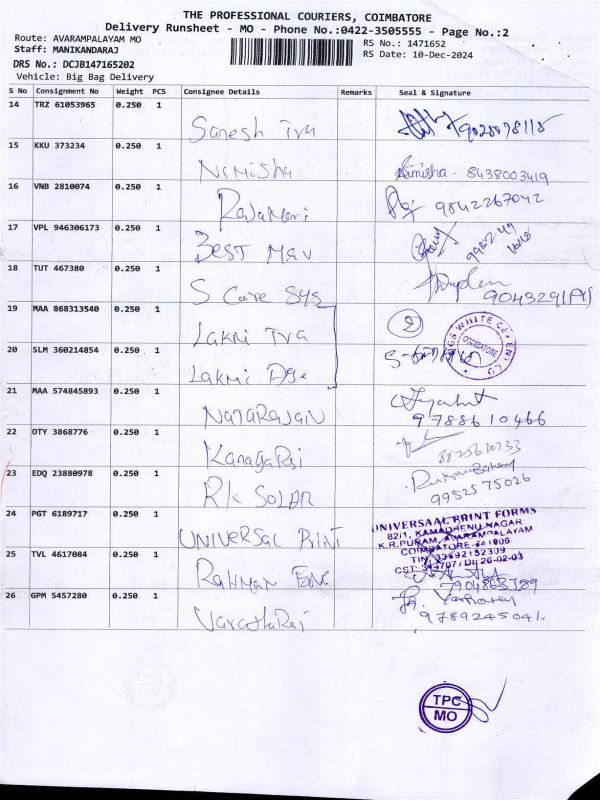 THE PROFESSIONAL COURIERS, COIMBATORE
Delivery Runsheet - MO - Phone No.:0422-3505555 - Page No.:2
Route: AVARAMPALAYAM MO
Staff: MANIKANDARAJ
RS No.: 1471652
RS Date: 10-Dec-2024
DRS No.: DCJB147165202
Vehicle: Big Bag Delivery
S No Consignment No Weight PCS Consignee Details Remarks Seal & Signature
14 TRZ 61053965 0.250 1
Sanesh Tra
15 KKU 373234 0.250 1
Nimisha Nimisha. 8438003419
16 VNB 2810074 0.250 1
RajaMari 9842267042
17 VPL 946306173 0.250 1
BEST Mav
18 TUT 467380 0.250 1
S Care Sys
19 MAA 868313540 0.250 1
Lakmi Tra
20 SLM 360214854 0.250 1
Lakmi Age
COIMBATORE
21 MAA 574845893 0.250 1
NATARAJAN 9788610466
22 OTY 3868776 0.250 1
KanagaRaj
23 EDQ 23880978 0.250 1
RK SOLAR 9952575026
24 PGT 6189717 0.250 1
UNIVERSAL PRINT
UNIVERSAAL PRINT FORMS
82/1, KAMADHENU NAGAR
K.R.PURAM, AVARAMPALAYAM
COIMBATORE-641006
25 TVL 4617084 0.250 1
Rahman Enc
26 GPM 5457280 0.250 1
VarathaRaj 9789245041.
TPC
MO